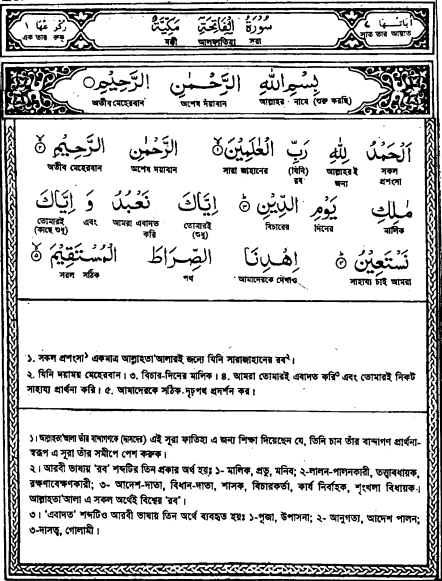 رُكُوْعُهَا ١ سُوْرَةُ الْفَاتِحَةِ مَكِّيَّةٌ اٰيَاتُهَا ٧
এক তার রুকু মক্কী আলফাতিহা সূরা সাত তার আয়াত
بِسْمِ اللّٰهِ الرَّحْمٰنِ الرَّحِيْمِ
অতীব মেহেরবান অশেষ দয়াবান আল্লাহর নামে (শুরু করছি)
اَلْحَمْدُ لِلّٰهِ رَبِّ الْعٰلَمِيْنَ ١ الرَّحْمٰنِ الرَّحِيْمِ ٢
অতীব মেহেরবান অশেষ দয়াবান সারা জাহানের (যিনি) রব আল্লাহরই জন্য সকল প্রশংসা
مٰلِكِ يَوْمِ الدِّيْنِ ٣ اِيَّاكَ نَعْبُدُ وَ اِيَّاكَ
তোমারই (কাছে শুধু) এবং আমরা এবাদত করি তোমারই (শুধু) বিচারের দিনের মালিক
نَسْتَعِيْنُ ٤ اِهْدِنَا الصِّرَاطَ الْمُسْتَقِيْمَ ٥
সরল সঠিক পথ আমাদেরকে দেখাও সাহায্য চাই আমরা
১. সকল প্রশংসা১ একমাত্র আল্লাহতা'আলারই জন্যে যিনি সারাজাহানের রব২।
২. যিনি দয়াময় মেহেরবান। ৩. বিচার-দিনের মালিক। ৪. আমরা তোমারই এবাদত করি৩ এবং তোমারই নিকট
সাহায্য প্রার্থনা করি। ৫. আমাদেরকে সঠিক দৃঢ়পথ প্রদর্শন কর।
১। আল্লাহতা'আলা তাঁর বান্দাগণকে (দাসদের) এই সূরা ফাতিহা এ জন্য শিক্ষা দিয়েছেন যে, তিনি চান তাঁর বান্দাগণ প্রার্থনা-
স্বরূপ এ সূরা তাঁর সমীপে পেশ করুক।
২। আরবী ভাষায় 'রব' শব্দটির তিন প্রকার অর্থ হয়ঃ ১- মালিক, প্রভু, মনিব; ২-লালন-পালনকারী, তত্ত্বাবধায়ক,
রক্ষণাবেক্ষণকারী; ৩- আদেশ-দাতা, বিধান-দাতা, শাসক, বিচারকর্তা, কার্য নির্বাহক, শৃংখলা বিধায়ক।
আল্লাহতা'আলা এ সকল অর্থেই বিশ্বের 'রব'।
৩। 'এবাদত' শব্দটিও আরবী ভাষায় তিন অর্থে ব্যবহৃত হয়ঃ ১-পূজা, উপাসনা; ২- আনুগত্য, আদেশ পালন;
৩-দাসত্ব, গোলামী।